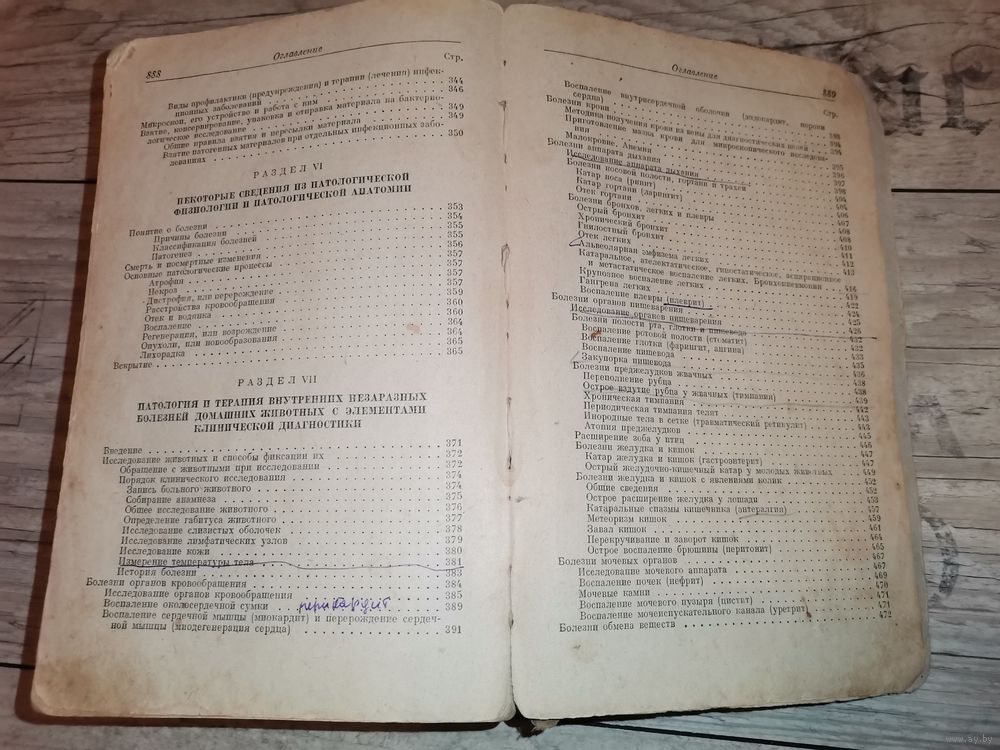 888
Оглавление
Стр.
Виды профилактики (предупреждения) и терапии (лечения) инфек-
ционных заболеваний 344
Микроскоп, его устройство и работа с ним 346
Взятие, консервирование, упаковка и отправка материала на бактерио-
логическое исследование 349
Общие правила взятия и пересылки материала 349
Взятие патогенных материалов при отдельных инфекционных забо-
леваниях 350
РАЗДЕЛ VI
НЕКОТОРЫЕ СВЕДЕНИЯ ИЗ ПАТОЛОГИЧЕСКОЙ
ФИЗИОЛОГИИ И ПАТОЛОГИЧЕСКОЙ АНАТОМИИ
Понятие о болезни 353
Причины болезни 354
Классификация болезней 355
Патогенез 355
Смерть и посмертные изменения 356
Основные патологические процессы 357
Атрофия 357
Некроз 357
Дистрофия, или перерождение 357
Расстройства кровообращения 359
Отек и водянка 360
Воспаление 360
Регенерация, или возрождение 364
Опухоли, или новообразования 364
Лихорадка 365
Вскрытие 365
РАЗДЕЛ VII
ПАТОЛОГИЯ И ТЕРАПИЯ ВНУТРЕННИХ НЕЗАРАЗНЫХ
БОЛЕЗНЕЙ ДОМАШНИХ ЖИВОТНЫХ С ЭЛЕМЕНТАМИ
КЛИНИЧЕСКОЙ ДИАГНОСТИКИ
Введение 371
Исследование животных и способы фиксации их 372
Обращение с животными при исследовании 372
Порядок клинического исследования 374
Запись больного животного 374
Собирание анамнеза 375
Общее исследование животного 376
Определение габитуса животного 377
Исследование слизистых оболочек 378
Исследование лимфатических узлов 379
Исследование кожи 380
Измерение температуры тела 381
История болезни 383
Болезни органов кровообращения 384
Исследование органов кровообращения 385
Воспаление околосердечной сумки перикардит 389
Воспаление сердечной мышцы (миокардит) и перерождение сердеч-
ной мышцы (миодегенерация сердца) 391
Оглавление
889
Стр.
Воспаление внутрисердечной оболочки (эндокардит, пороки
сердца)
Болезни крови
Методика получения крови из вены для диагностических целей
Приготовление мазка крови для микроскопического исследова-
ния
Малокровие. Анемия 395
Болезни аппарата дыхания 396
Исследование аппарата дыхания 397
Болезни носовой полости, гортани и трахеи
Катар носа (ринит)
Катар гортани (ларингит)
Отек гортани
Болезни бронхов, легких и плевры
Острый бронхит
Хронический бронхит
Гнилостный бронхит
Отек легких
Альвеолярная эмфизема легких
Катаральное, ателектатическое, гипостатическое, аспирационное
и метастатическое воспаление легких. Бронхопневмония
Крупозное воспаление легких
Гангрена легких
Воспаление плевры (плеврит)
Болезни органов пищеварения
Исследование органов пищеварения
Болезни полости рта, глотки и пищевода
Воспаление ротовой полости (стоматит)
Воспаление глотки (фарингит, ангина)
Воспаление пищевода
Закупорка пищевода
Болезни преджелудков жвачных
Переполнение рубца
Острое вздутие рубца у жвачных (тимпания)
Хроническая тимпания
Периодическая тимпания телят
Инородные тела в сетке (травматический ретикулит)
Атония преджелудков
Расширение зоба у птиц
Болезни желудка и кишок
Катар желудка и кишок (гастроэнтерит)
Острый желудочно-кишечный катар у молодых животных
Болезни желудка и кишок с явлениями колик
Общие сведения
Острое расширение желудка у лошади
Катаральные спазмы кишечника (энтералгия)
Метеоризм кишок
Завал кишок
Перекручивание и заворот кишок
Острое воспаление брюшины (перитонит)
Болезни мочевых органов
Исследование мочевого аппарата
Воспаление почек (нефрит)
Мочевые камни
Воспаление мочевого пузыря (цистит)
Воспаление мочеиспускательного канала (уретрит)
Болезни обмена веществ 472
www.ay.by